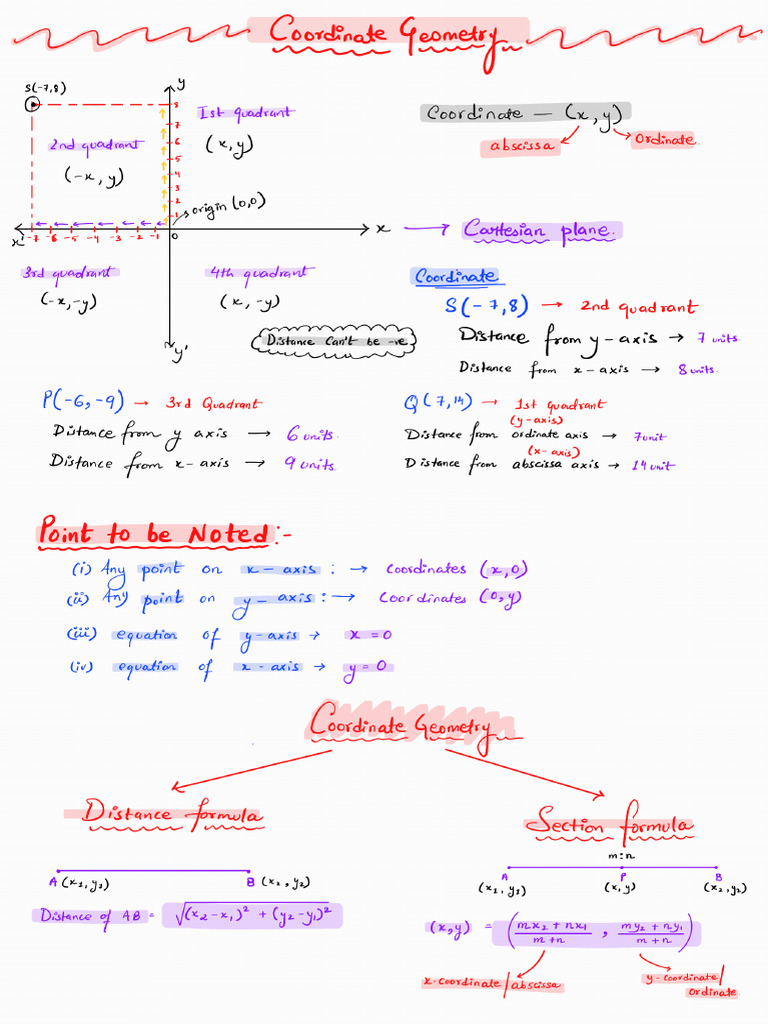 Coordinate Geometry
S(-7,8)
y
1st quadrant
(x, y)
2nd quadrant
(-x, y)
8
7
6
5
4
3
2
1
origin (0,0)
x' -7 -6 -5 -4 -3 -2 -1 0 x → Cartesian plane.
3rd quadrant
(-x, -y)
4th quadrant
(x, -y)
y'
Distance Can't be -ve
Coordinate — (x, y)
abscissa
Ordinate.
Coordinate
S(-7,8) → 2nd quadrant
Distance from y-axis → 7 units.
Distance from x-axis → 8 units.
P(-6, -9) → 3rd Quadrant
Distance from y axis → 6 units.
Distance from x-axis → 9 units.
Q(7,14) → 1st quadrant
(y-axis)
Distance from ordinate axis → 7unit
(x-axis)
Distance from abscissa axis → 14 unit
Point to be Noted:-
(i) Any point on x-axis : → coordinates (x,0)
(ii) Any point on y-axis : → coordinates (0,y)
(iii) equation of y-axis → x=0
(iv) equation of x-axis → y=0
Coordinate Geometry
Distance formula
A (x1, y1) B (x2, y2)
Distance of AB = √(x2-x1)² + (y2-y1)²
Section formula
m:n
A P B
(x1, y1) (x, y) (x2, y2)
(x, y) = (mx2 + nx1 / m+n , my2 + ny1 / m+n)
x-coordinate/abscissa
y-coordinate/
Ordinate.